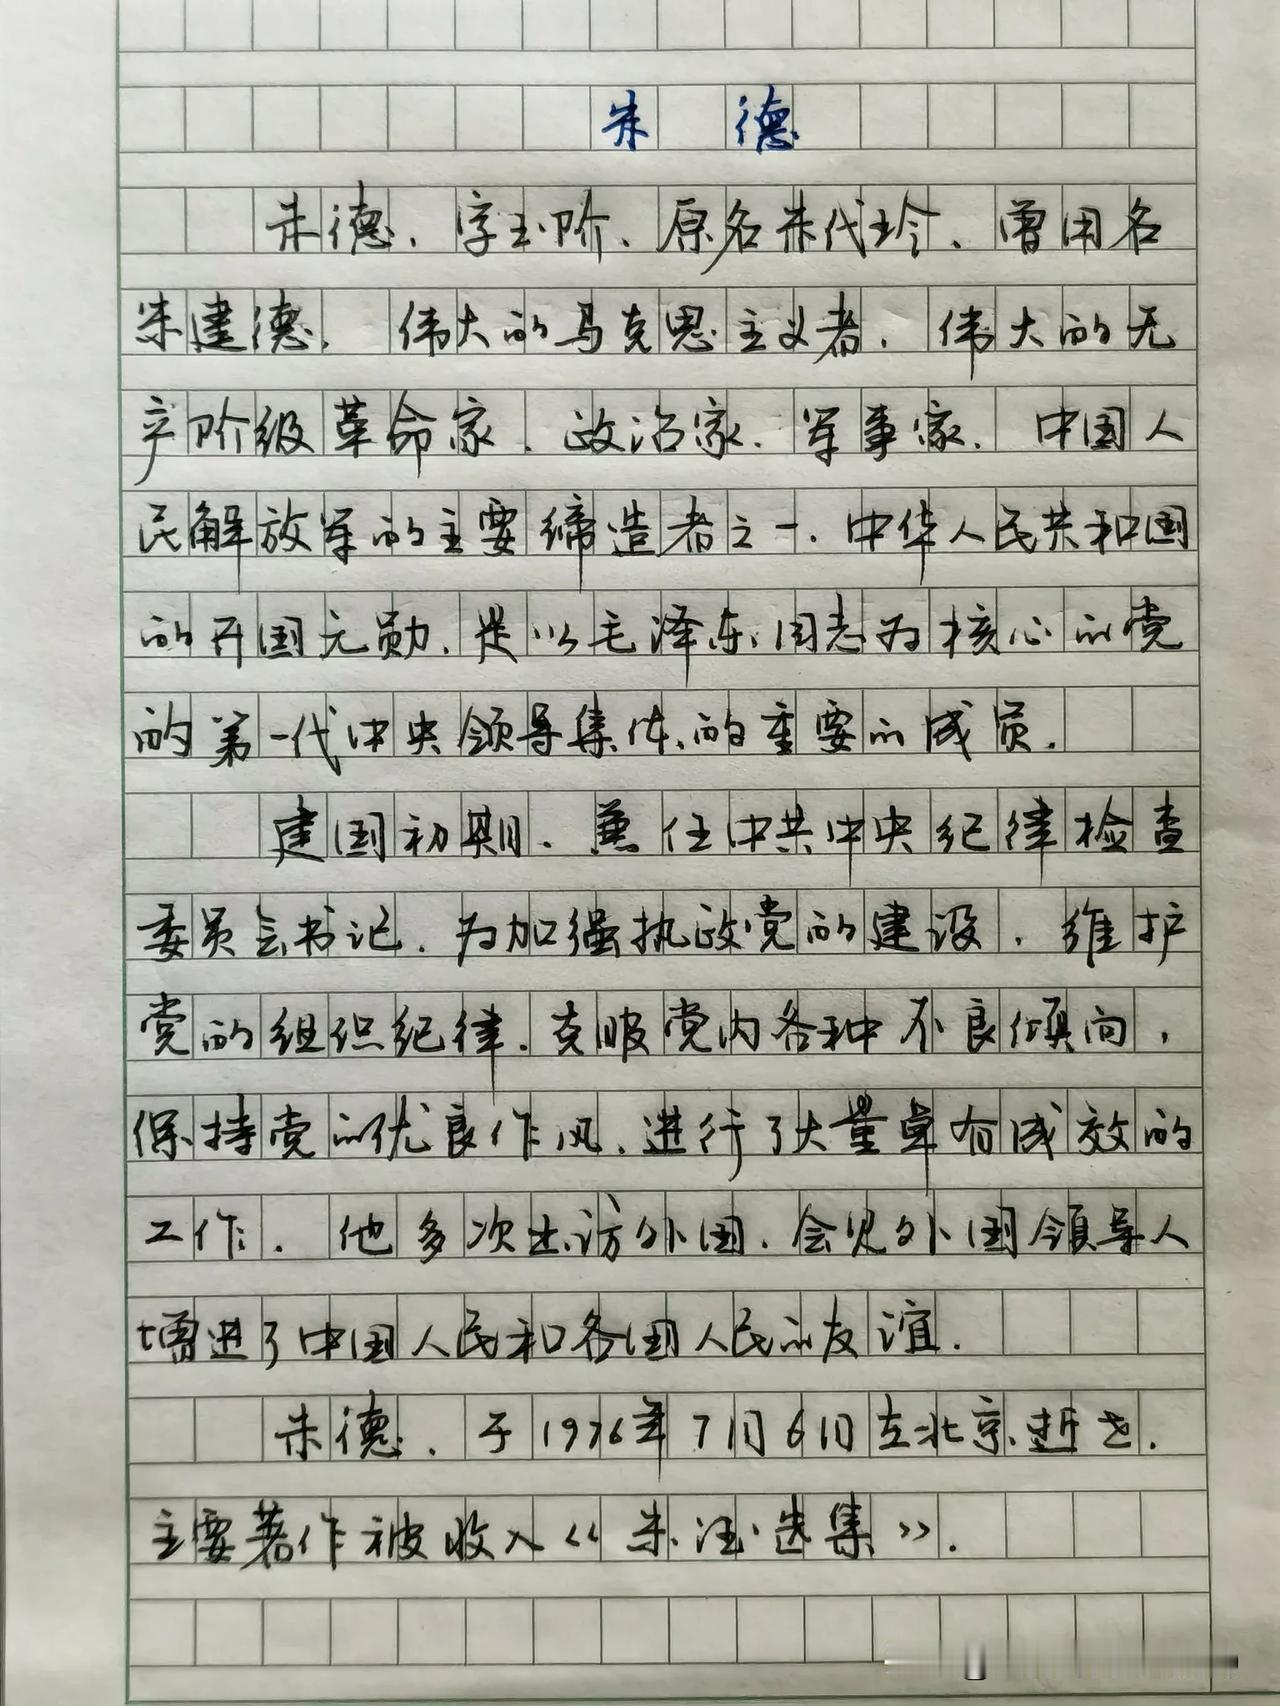 朱德
朱德、字玉阶、原名朱代珍、曾用名
朱建德、伟大的马克思主义者、伟大的无
产阶级革命家、政治家、军事家、中国人
民解放军的主要缔造者之一、中华人民共和国
的开国元勋、是以毛泽东同志为核心的党
的第一代中央领导集体的重要的成员.
建国初期、兼任中共中央纪律检查
委员会书记、为加强执政党的建设、维护
党的组织纪律、克服党内各种不良倾向,
保持党的优良作风、进行了大量卓有成效的
工作. 他多次出访外国、会见外国领导人
增进了中国人民和各国人民的友谊.
朱德、于1976年7月6日在北京逝世.
主要著作被收入《朱德选集》.